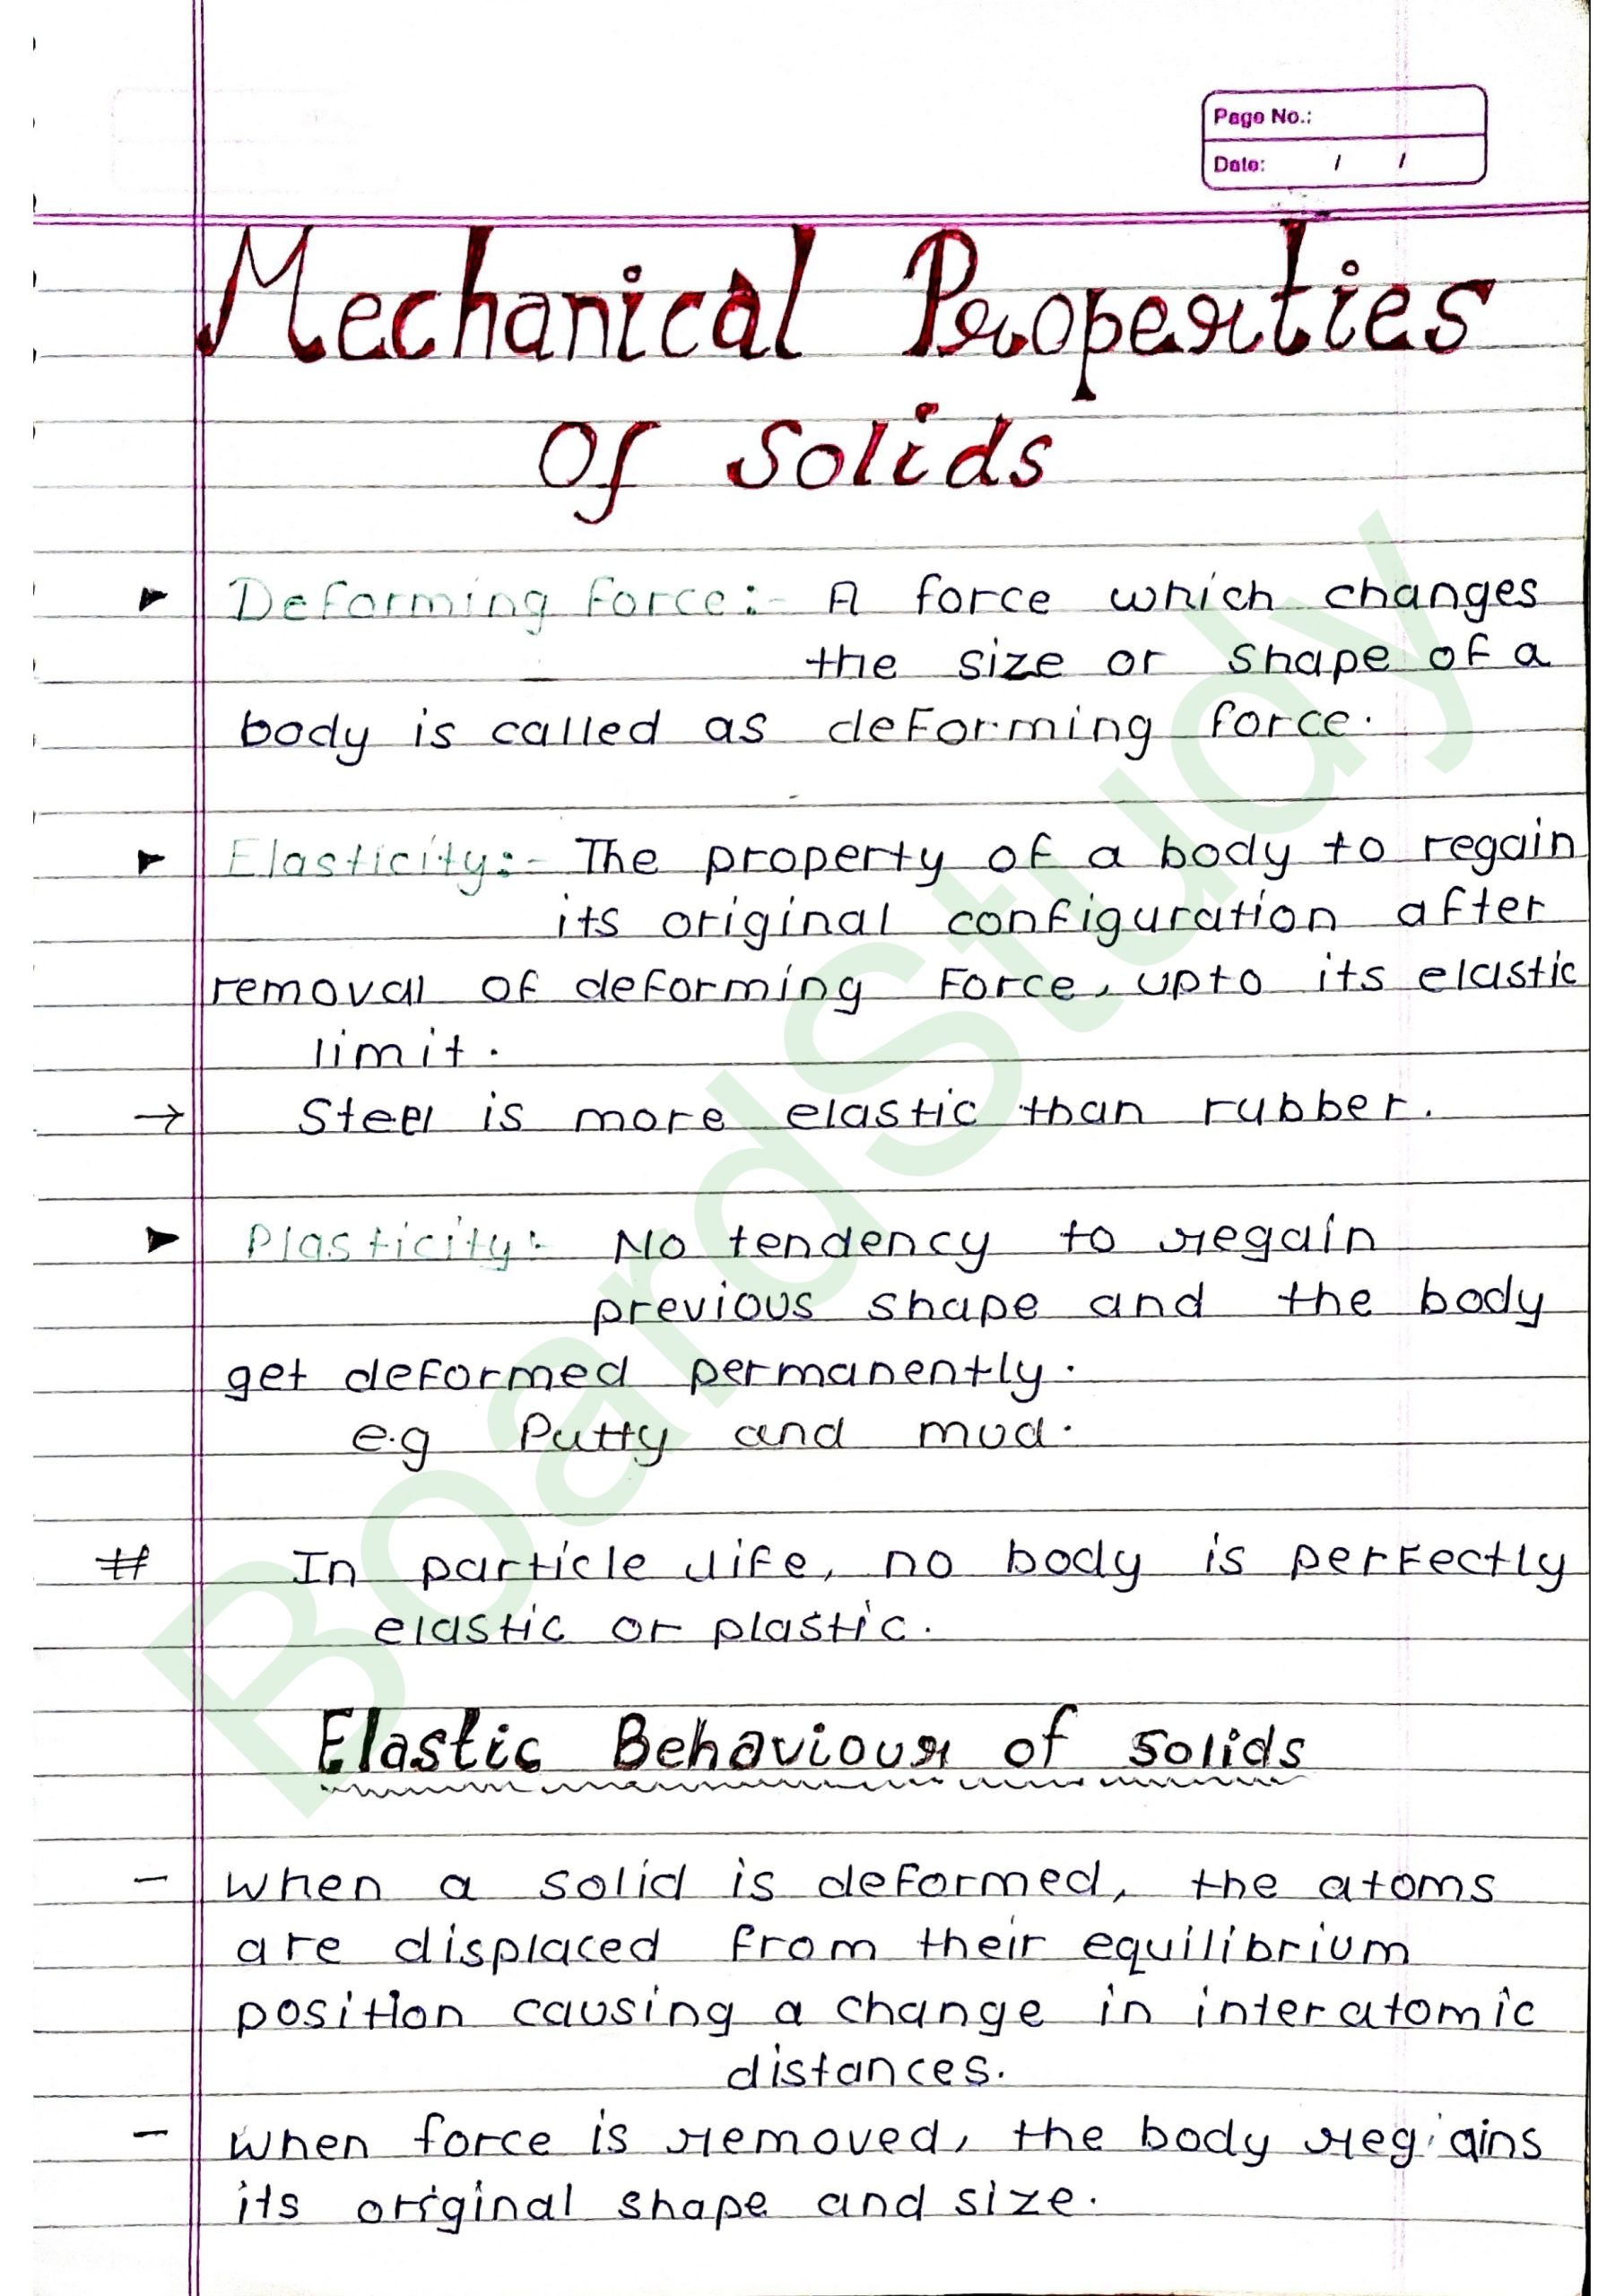 Page No.:
Date: / /
Mechanical Properties
Of Solids
► Deforming force:- A force which changes
the size or shape of a
body is called as deforming force.
► Elasticity:- The property of a body to regain
its original configuration after
removal of deforming force, upto its elastic
limit.
→ Steel is more elastic than rubber.
► Plasticity:- No tendency to regain
previous shape and the body
get deformed permanently.
e.g Putty and mud.
# In particle life, no body is perfectly
elastic or plastic.
Elastic Behaviour of solids
- When a solid is deformed, the atoms
are displaced from their equilibrium
position causing a change in interatomic
distances.
- When force is removed, the body regains
its original shape and size.
BoardStudy